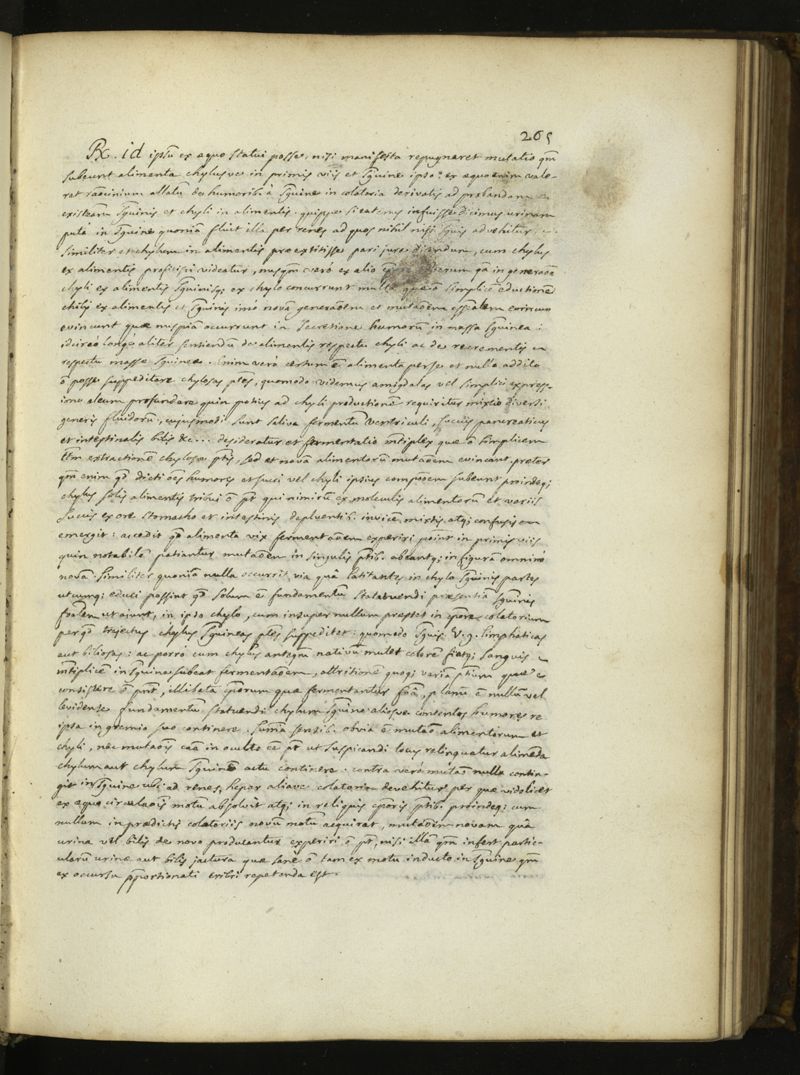 265
Rx. id ipsū ex aequo statui posse, nisi manifesta repugnaret mutatio qm̄
subeunt alimenta chylusve in primis viis et sguine ipso: ex aequo enim vale-
ret rōcinium allatū de humoribꝰ a sguine in colatoria derivatis ad probandam
existeam̄ sguinis et chyli in alimentis. quippe si eatenus infuisse dicimus urinam
puta in sguine quoniā fluit illa per renes ad quos nihil nisi sguis advehitur
similiter et chylum in alimentis praeextitisse pari jure dicendum, cum chylus
ex alimentis proficisci videatur, nusqm̄ vero ex alio verum qa in generaōe
chyli ex alimentis sguinisqꝫ ex chylo concurrunt simplicē eductionē
chili ex alimentis et sguinis imo novā generaōem et mutaōem eſſialem omnino
evincunt quae nuspiā occurrunt in secretione humorū in massa sguinea:
idcirco longe aliter sentiendū de alimentis respectu chyli ac de recrementis in
respectu massae sguineae. Enim vero certum ē alimenta per se et nullo addito
ō posse suppeditare chylosas ptes, quomodo videmus amigdalas vel simplici expres-
imo oleum profundere quin potius ad chyli productionē requiritur mixtio diversi
generis fluidorū, cujusmodi sunt saliva fermentū ventriculi, succus pancreaticus
et intestinalis bilis &c... desideratur et fermentatio intiplex quae ō simplicem
tm̄ extractionē chylosae ptis, sed et novā alimentorū mutaōem evincant, praeter
qm̄ enim qd̄ dicti ōes humores et suci vel chyli ipsius composōem subeunt proindeqꝫ
chylus solis alimentis tribui ō pt̄ qui nimirū ex moleculis alimentorū et variis
succis ex ore stomacho et intestinis depluentibꝰ invicē mixtis atqꝫ confusis em
emergit: accedit qd̄ alimenta vix fermentaōem experiri poſint in primis viis
quin notabilē patiantur mutaōem in singulis ptibꝰ abeantqꝫ in figurā omnino
novā. similiter quoniā nulla occurrit via quā latitantes in chylo sguinis partes
utcumqꝫ educi possint qd̄ solum ē fundamentū statuendi praesentiā sguinis
foalem ut aiunt, in ipso chylo, cum insuper nullum praestet in colatorium
per qd̄ trajectus chylus sguineas ptes suppeditet: quomodo sguis v.g. limphaticas
aut biliosas: ac porro cum chylus anteqm̄ nativū mutet colorē fiatqꝫ sanguis
intiplicē in sguine subeat fermentaōem, attritionē quoqꝫ variā ptium quae
consistere ō pnt̄, illibata eorum quae fermentantur foā, planū ē nullū vel
levidense fundamentū statuendi chylum sguine aliosve contentos humores re
ipsa in gremio suo continere. summa sensibꝰ obvia ē mutaō alimentorum et
chyli, nec mutaōis caā in occulto eē pt̄ ut suspicandi locus relinquatur alimēta
chylum aut chylum sguinē actu continere. contra vero mutaō nulla contin-
git in sguine ubi ad renes, hepar aliave colatoria devehitur per quae videlicet
ex aequo circulaōis motū absolvit atqꝫ in reliquis cporis ptibꝰ proindeqꝫ cum
nullum in praedictis colatoriis novū motū acquirat, mutaōem novam quā
urina vel bilis de novo producantur experiri ō pt̄, nisi illā qm̄ infert partic-
ularū urinae aut bilis jactura quae sane ō tam ex motu inducto in sguine qm̄
ex occursu pportionati cribri repetenda est.